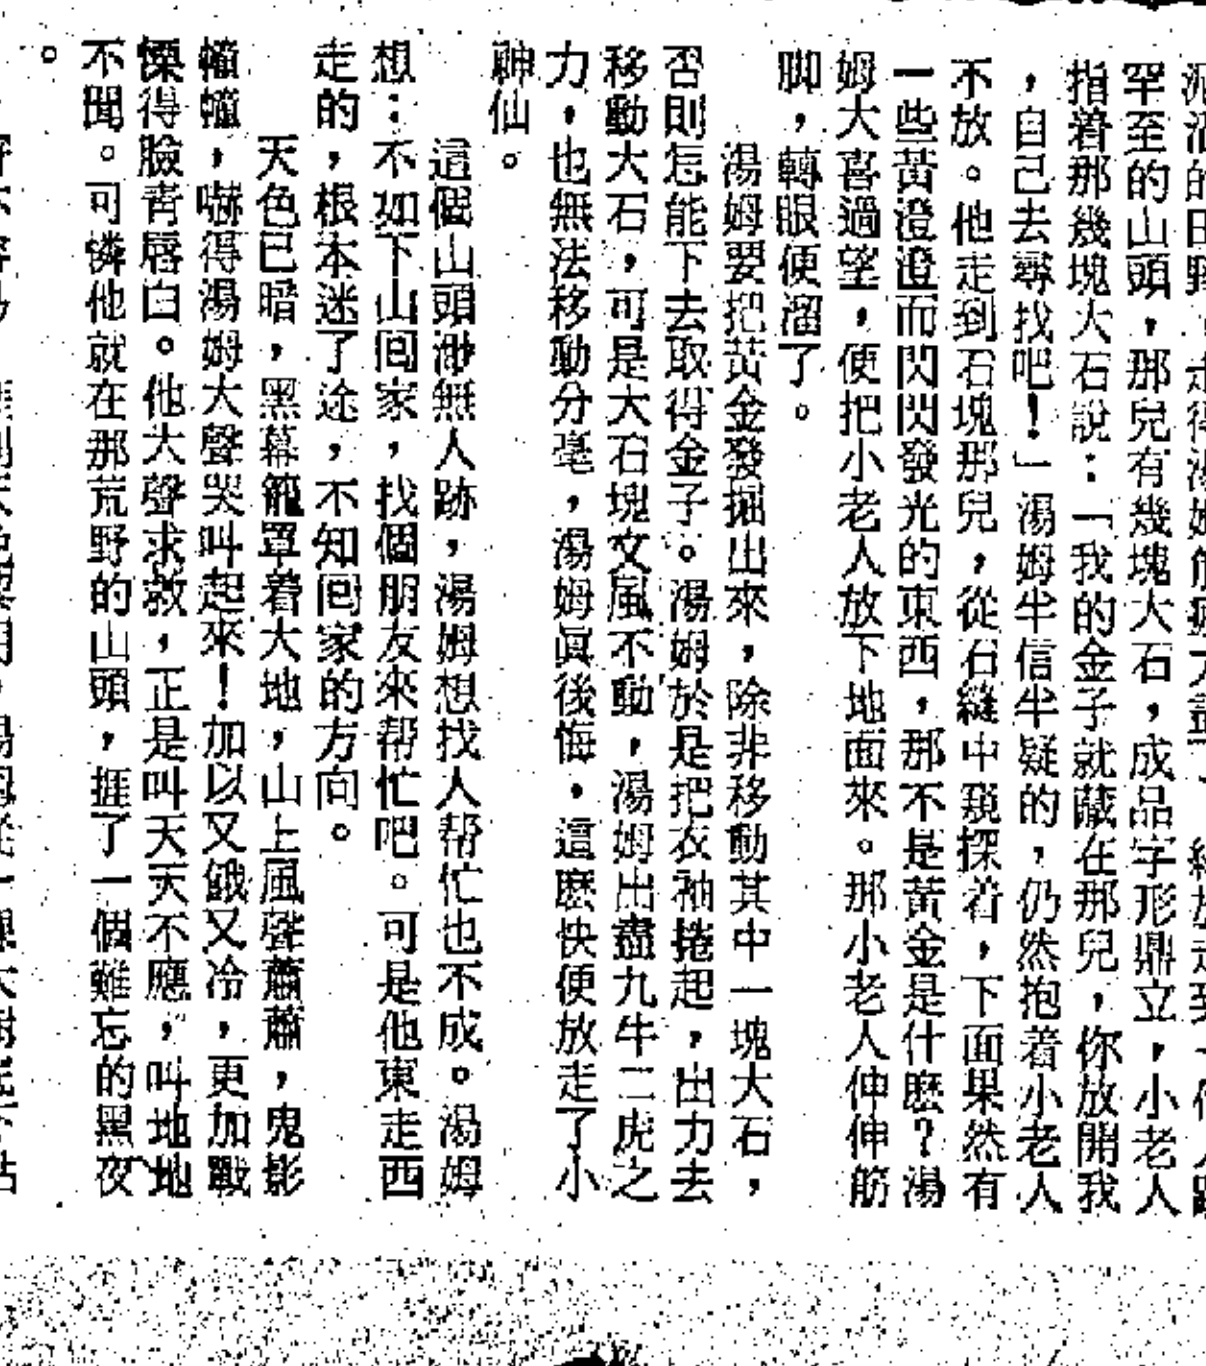 罕至的山頭，那兒有幾塊大石，成品字形鼎立，小老人
指着那幾塊大石說：「我的金子就藏在那兒，你放開我
，自己去尋找吧！」湯姆半信半疑的，仍然抱着小老人
不放。他走到石塊那兒，從石縫中窺探着，下面果然有
一些黃澄澄而閃閃發光的東西，那不是黃金是什麽？湯
姆大喜過望，便把小老人放下地面來。那小老人伸伸筋
脚，轉眼便溜了。
湯姆要把黃金發掘出來，除非移動其中一塊大石，
否則怎能下去取得金子。湯姆於是把衣袖捲起，出力去
移動大石，可是大石塊文風不動，湯姆出盡九牛二虎之
力，也無法移動分毫，湯姆眞後悔，這麽快便放走了小
神仙。
這個山頭渺無人跡，湯姆想找人帮忙也不成。湯姆
想：不如下山囘家，找個朋友來帮忙吧。可是他東走西
走的，根本迷了途，不知囘家的方向。
天色已暗，黑幕籠罩着大地，山上風聲蕭蕭，鬼影
幢幢，嚇得湯姆大聲哭叫起來！加以又餓又冷，更加戰
慄得臉青唇白。他大聲求救，正是叫天天不應，叫地地
不聞。可憐他就在那荒野的山頭，捱了一個難忘的黑夜
。